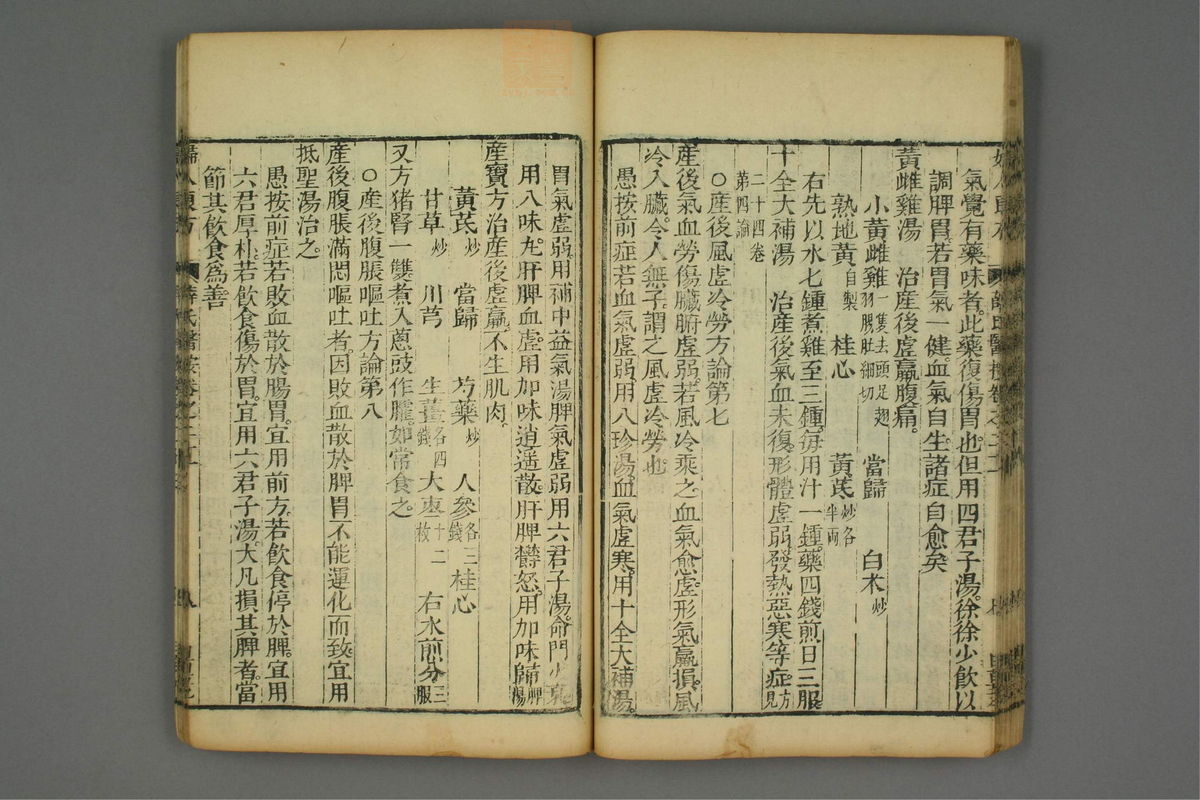 氣覺有藥味者。此藥復傷胃也。但用四君子湯。徐徐少飲以
調脾胃。若胃氣一健。血氣自生。諸症自愈矣
黃雌雞湯　治產後虛羸腹痛。
小黃雌雞一隻去頭足翅羽腸肚細切　當歸　白朮炒
熟地黃自製　桂心　黃芪炒各半兩
右先以水七鍾煮雞至三鍾。每用汁一鍾。藥四錢煎日三服。
十全大補湯　治產後氣血未復。形體虛弱。發熱惡寒等症。方見
二十四卷第四論
○產後風虛冷勞方論第七
產後氣血勞傷。臟腑虛弱。若風冷乘之。血氣愈虛。形氣羸損。風
冷入臟。令人無子。謂之風虛冷勞也。
愚按前症若血氣虛弱。用八珍湯。血氣虛寒。用十全大補湯。
胃氣虛弱。用補中益氣湯。脾氣虛弱。用六君子湯。命門火衰。
用八味丸。肝脾血虛。用加味逍遙散。肝脾鬱怒。用加味歸脾湯
產寶方治產後虛羸。不生肌肉。
黃芪炒　當歸　芍藥炒　人參各三錢　桂心
甘草炒　川芎　生薑各四錢　大棗十二枚　右水煎分三服
又方猪腎一雙煮入蔥豉作臛。如常食之。
○產後腹脹嘔吐方論第八
產後腹脹滿悶嘔吐者。因敗血散於脾胃。不能運化而致。宜用
抵聖湯治之。
愚按前症若敗血散於腸胃。宜用前方。若飲食停於脾。宜用
六君厚朴。若飲食傷於胃。宜用六君子湯。大凡損其脾者。當
節其飲食爲善